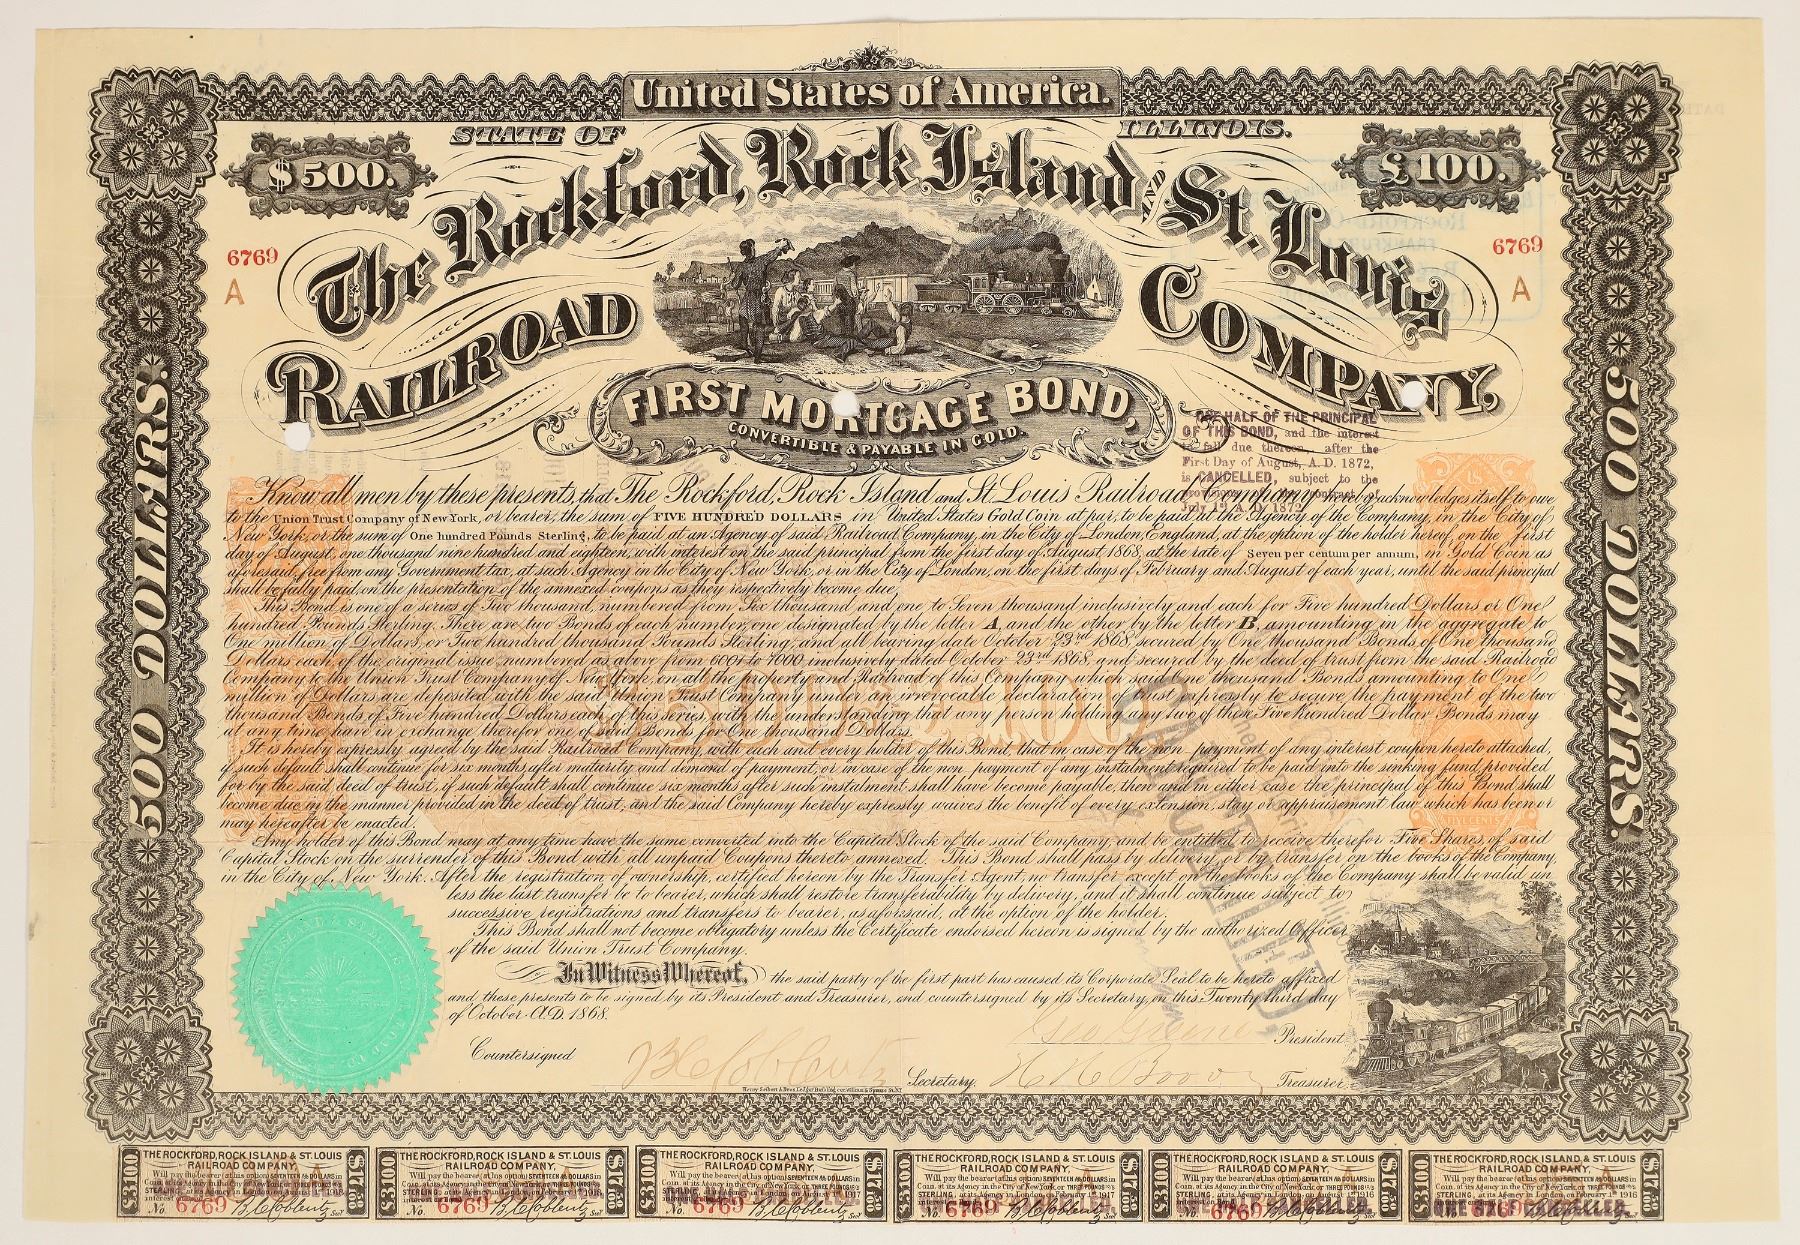 United States of America.
STATE OF ILLINOIS.
$500.
£100.
The Rockford, Rock Island AND St. Louis
RAILROAD COMPANY,
6769
A
6769
A
FIRST MORTGAGE BOND,
CONVERTIBLE & PAYABLE IN GOLD.
ONE HALF OF THE PRINCIPAL
OF THIS BOND, and the interest
to fall due thereon, after the
First Day of August, A. D. 1872,
is CANCELLED, subject to the
provisions of the contract of
July 1st A. D. 1872
500 DOLLARS.
500 DOLLARS.
Know all men by these presents, that The Rockford, Rock Island and St. Louis Railroad Company hereby acknowledges itself to owe
to the Union Trust Company of New York, or bearer, the sum of FIVE HUNDRED DOLLARS in United States Gold Coin at par, to be paid at the Agency of the Company, in the City of
New York, or the sum of One hundred Pounds Sterling, to be paid at an Agency of said Railroad Company, in the City of London, England, at the option of the holder hereof, on the first
day of August, one thousand nine hundred and eighteen, with interest on the said principal from the first day of August 1868, at the rate of Seven per centum per annum, in Gold Coin as
aforesaid, free from any Government tax, at such Agency in the City of New York, or in the City of London, on the first days of February and August of each year, until the said principal
shall be fully paid, on the presentation of the annexed coupons as they respectively become due,
This Bond is one of a series of Two thousand, numbered from Six thousand and one to Seven thousand inclusively and each for Five hundred Dollars or One
hundred Pounds Sterling. There are two Bonds of each number, one designated by the letter A, and the other by the letter B, amounting in the aggregate to
One million of Dollars, or Two hundred thousand Pounds Sterling, and all bearing date October 23rd 1868, secured by One thousand Bonds of One thousand
Dollars each, of the original issue numbered as above from 6001 to 7000, inclusively dated October 23rd 1868, and secured by the deed of trust from the said Railroad
Company to the Union Trust Company of New York, on all the property and Railroad of this Company which said one thousand Bonds amounting to One
million of Dollars are deposited with the said Union Trust Company under an irrevocable declaration of trust expressly to secure the payment of the two
thousand Bonds of Five hundred Dollars each of this series, with the understanding that any person holding any two of them Five Hundred Dollar Bonds may
at any time have in exchange, therefor one of said Bonds for one thousand Dollars.
It is hereby expressly agreed by the said Railroad Company, with each and every holder of this Bond, that in case of the non payment of any interest coupon hereto attached,
if such default shall continue for six months after maturity and demand of payment, or in case of the non payment of any instalment required to be paid into the sinking fund, provided
for by the said deed of trust, if such default shall continue six months after such instalment shall have become payable, then and in either case the principal of this Bond shall
become due in the manner provided in the deed of trust, and the said Company hereby expressly waives the benefit of every extension, stay or appraisement law which has been or
may hereafter be enacted.
Any holder of this Bond may at any time have the same converted into the Capital Stock of the said Company, and be entitled to receive therefor Five Shares of said
Capital Stock on the surrender of this Bond with all unpaid Coupons thereto annexed. This Bond shall pass by delivery, or by transfer on the books of the Company,
in the City of New York. After the registration of ownership, certified hereon by the Transfer Agent, no transfer except on the books of the Company shall be valid un
less the last transfer be to bearer, which shall restore transferability by delivery, and it shall continue subject to
successive registrations and transfers to bearer, as aforesaid, at the option of the holder.
This Bond shall not become obligatory unless the Certificate endorsed hereon is signed by the authorized Officer
of the said Union Trust Company.
In Witness Whereof, the said party of the first part has caused its Corporate Seal to be hereto affixed
and these presents to be signed by its President and Treasurer, and countersigned by its Secretary, on this Twenty third day
of October A.D. 1868.
$500 £100
CANCELLED
Geo Greene President
Countersigned B C Coblentz Secretary. H H Boody Treasurer
Henry Seibert & Bros. Ledger Building cor. William & Spruce St. N.Y.
THE ROCKFORD, ROCK ISLAND & ST. LOUIS
RAILROAD COMPANY,
Will pay the bearer (at his option) SEVENTEEN 50 DOLLARS in
No. 6769 B. C. Coblentz Sec
£3.10.0
$17.50
THE ROCKFORD, ROCK ISLAND & ST. LOUIS
RAILROAD COMPANY,
Will pay the bearer (at his option) SEVENTEEN 50 DOLLARS in
No. 6769 B. C. Coblentz Sec
£3.10.0
$17.50
THE ROCKFORD, ROCK ISLAND & ST. LOUIS
RAILROAD COMPANY,
Will pay the bearer (at his option) SEVENTEEN 50 DOLLARS in
STERLING, at its Agency in London on August 1st 1917
No. 6769 B. C. Coblentz Sec
£3.10.0
$17.50
THE ROCKFORD, ROCK ISLAND & ST. LOUIS
RAILROAD COMPANY,
Will pay the bearer (at his option) SEVENTEEN 50 DOLLARS in
STERLING, at its Agency in London, on February 1st 1917
No. 6769 B. C. Coblentz Sec
£3.10.0
$17.50
THE ROCKFORD, ROCK ISLAND & ST. LOUIS
RAILROAD COMPANY,
Will pay the bearer (at his option) SEVENTEEN 50 DOLLARS in
STERLING, at its Agency in London on August 1st 1916
No. 6769 B. C. Coblentz Sec
ONE HALF CANCELLED.
£3.10.0
$17.50
THE ROCKFORD, ROCK ISLAND & ST. LOUIS
RAILROAD COMPANY,
Will pay the bearer (at his option) SEVENTEEN 50 DOLLARS in
STERLING, at its Agency in London on February 1st 1916
No. 6769
ONE HALF CANCELLED.
£3.10.0
$17.50